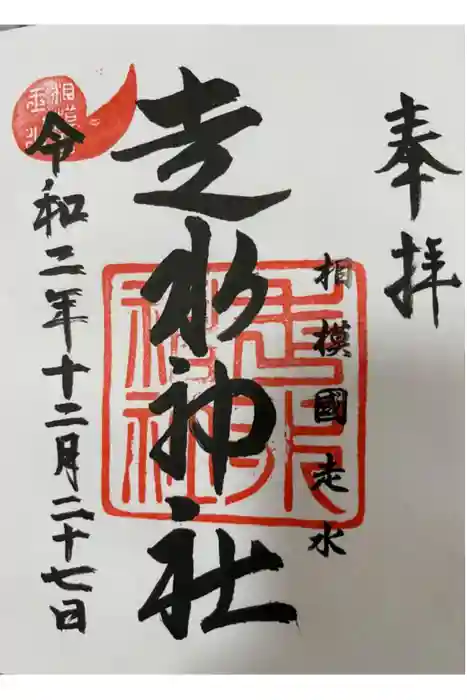 奉拝
相模國走水
走水神社
走水神社
令和二年十二月二十七日